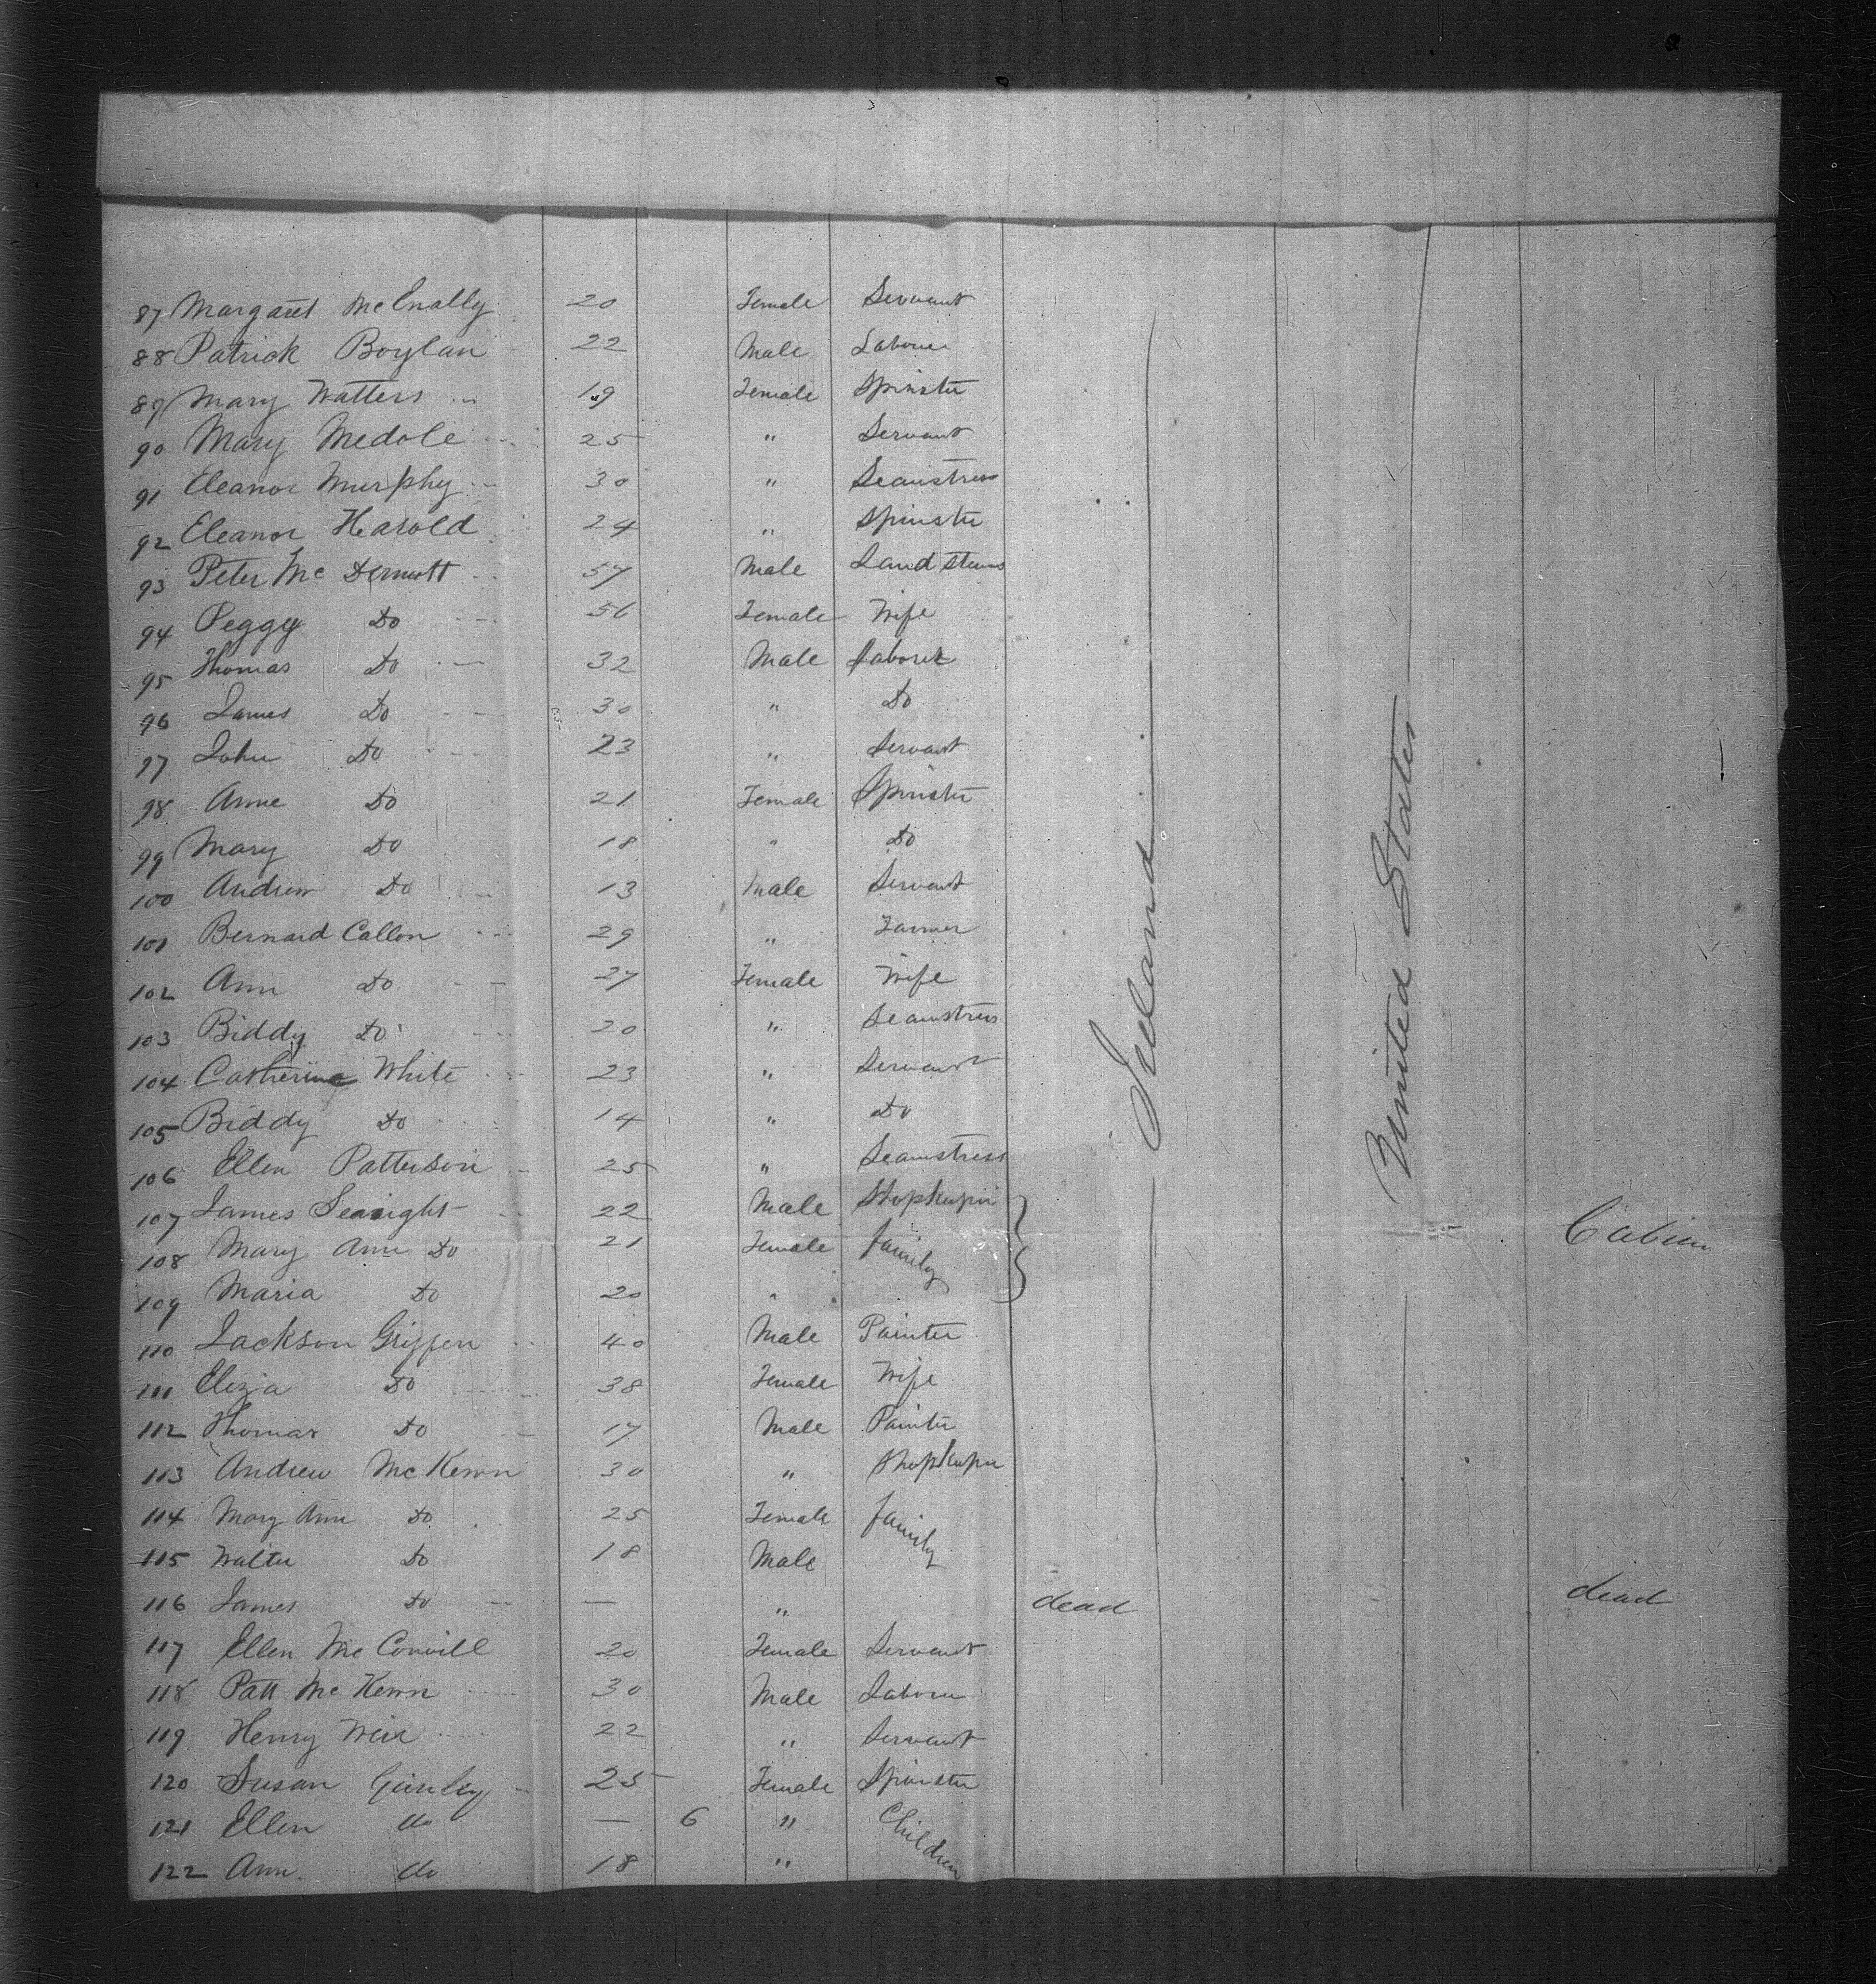 87 Margaret McEnally 20 Female Servant
88 Patrick Boylan 22 Male Laborer
89 Mary Watters 19 Female Spinster
90 Mary Medole 25 " Servant
91 Eleanor Murphy 30 " Seamstress
92 Eleanor Harold 24 " Spinster
93 Peter Mc Dermott 57 Male Land
94 Peggy Do 56 Female Wife
95 Thomas Do 32 Male Laborer
96 James Do 30 " Do
97 John Do 23 " Servant
98 Anne Do 21 Female Spinster
99 Mary Do 18 " Do
100 Andrew Do 13 Male Servant
101 Bernard Callon 29 " Farmer
102 Ann Do 27 Female Wife
103 Biddy Do 20 " Seamstress
104 Catherine White 23 " Servant
105 Biddy Do 14 " Do
106 Ellen Patterson 25 " Seamstress
107 James Searight 22 Male Shopkeeper
108 Mary Ann Do 21 Female family Cabin
109 Maria Do 20 "
110 Jackson Griffen 40 Male Painter
111 Eliza Do 38 Female Wife
112 Thomas Do 17 Male Painter
113 Andrew McKewn 30 " Shopkeeper
114 Mary Ann Do 25 Female family
115 Walter Do 18 Male
116 James Do — " dead dead
117 Ellen McConvill 20 Female Servant
118 Patt McKewn 30 Male Laborer
119 Henry Weir 22 " Servant
120 Susan 25 Female Spinster
121 Ellen do — 6 " Children
122 Ann do 18 "
Ireland
United States